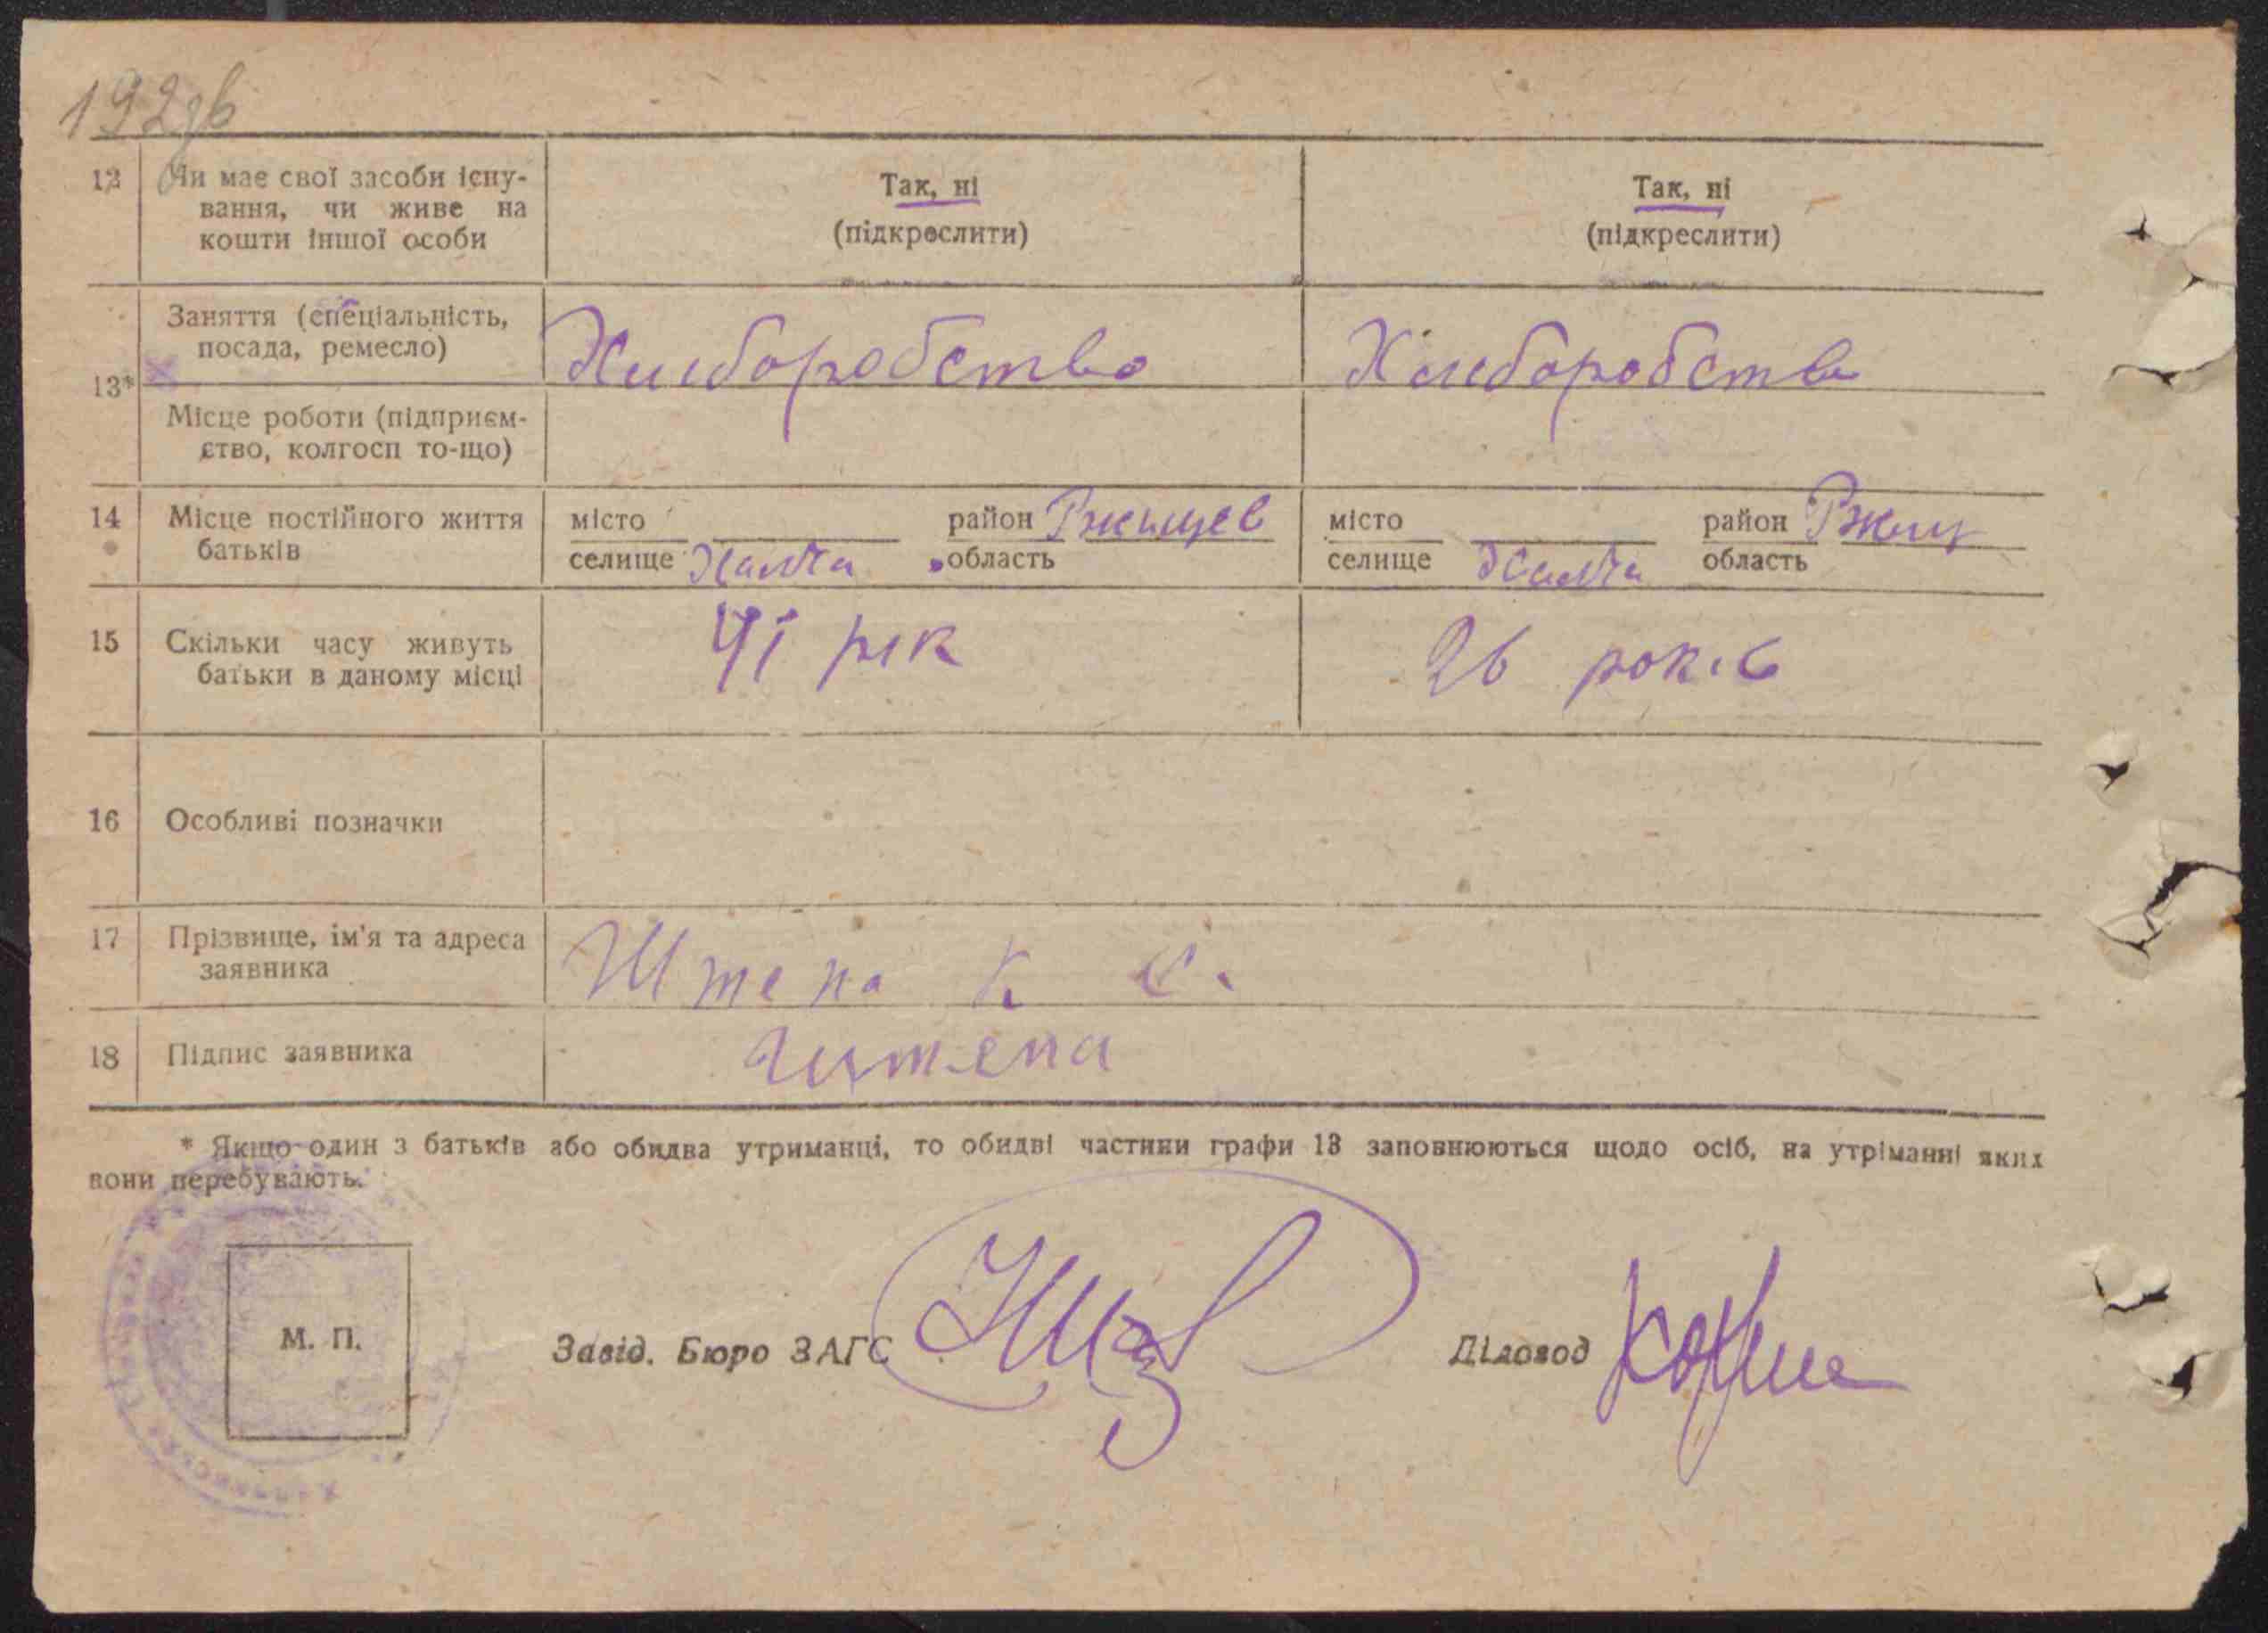 192зв
12 Чи має свої засоби існу-
вання, чи живе на
кошти іншої особи
Так, ні
(підкреслити)
Так, ні
(підкреслити)
13*
Заняття (спеціальність,
посада, ремесло)
Хліборобство
Хліборобство
Місце роботи (підприєм-
ство, колгосп то-що)
14 Місце постійного життя
батьків
місто район Ржищев
селище Халча область
місто район Ржищ
селище Халча область
15 Скільки часу живуть
батьки в даному місці
41 рік
26 років
16 Особливі позначки
17 Прізвище, ім'я та адреса
заявника
Штепа К С.
18 Підпис заявника
Штепа
* Якщо один з батьків або обидва утриманці, то обидві частини графи 13 заповнюються щодо осіб, на утріманні яких
вони перебувають.
М. П.
Завід. Бюро ЗАГС
Діловод